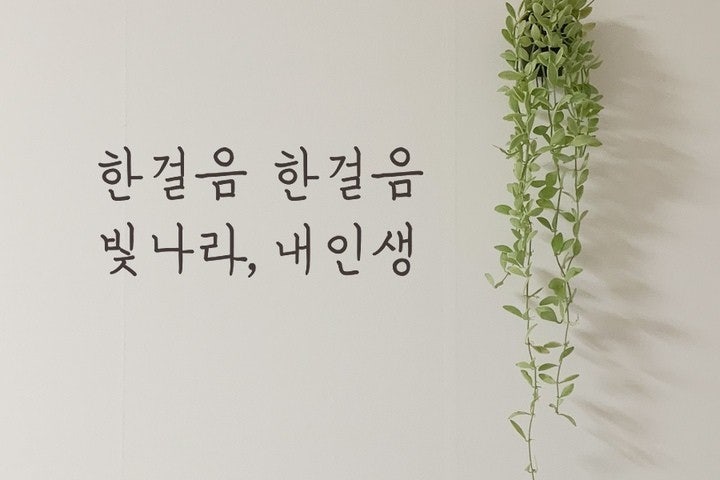 한걸음 한걸음
빛나라, 내인생